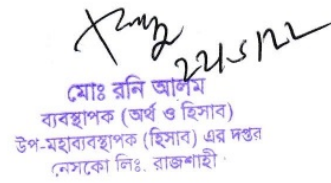 ২২/৫/২২
মোঃ রনি আলম
ব্যবস্থাপক (অর্থ ও হিসাব)
উপ-মহাব্যবস্থাপক (হিসাব) এর দপ্তর
নেসকো লিঃ, রাজশাহী।